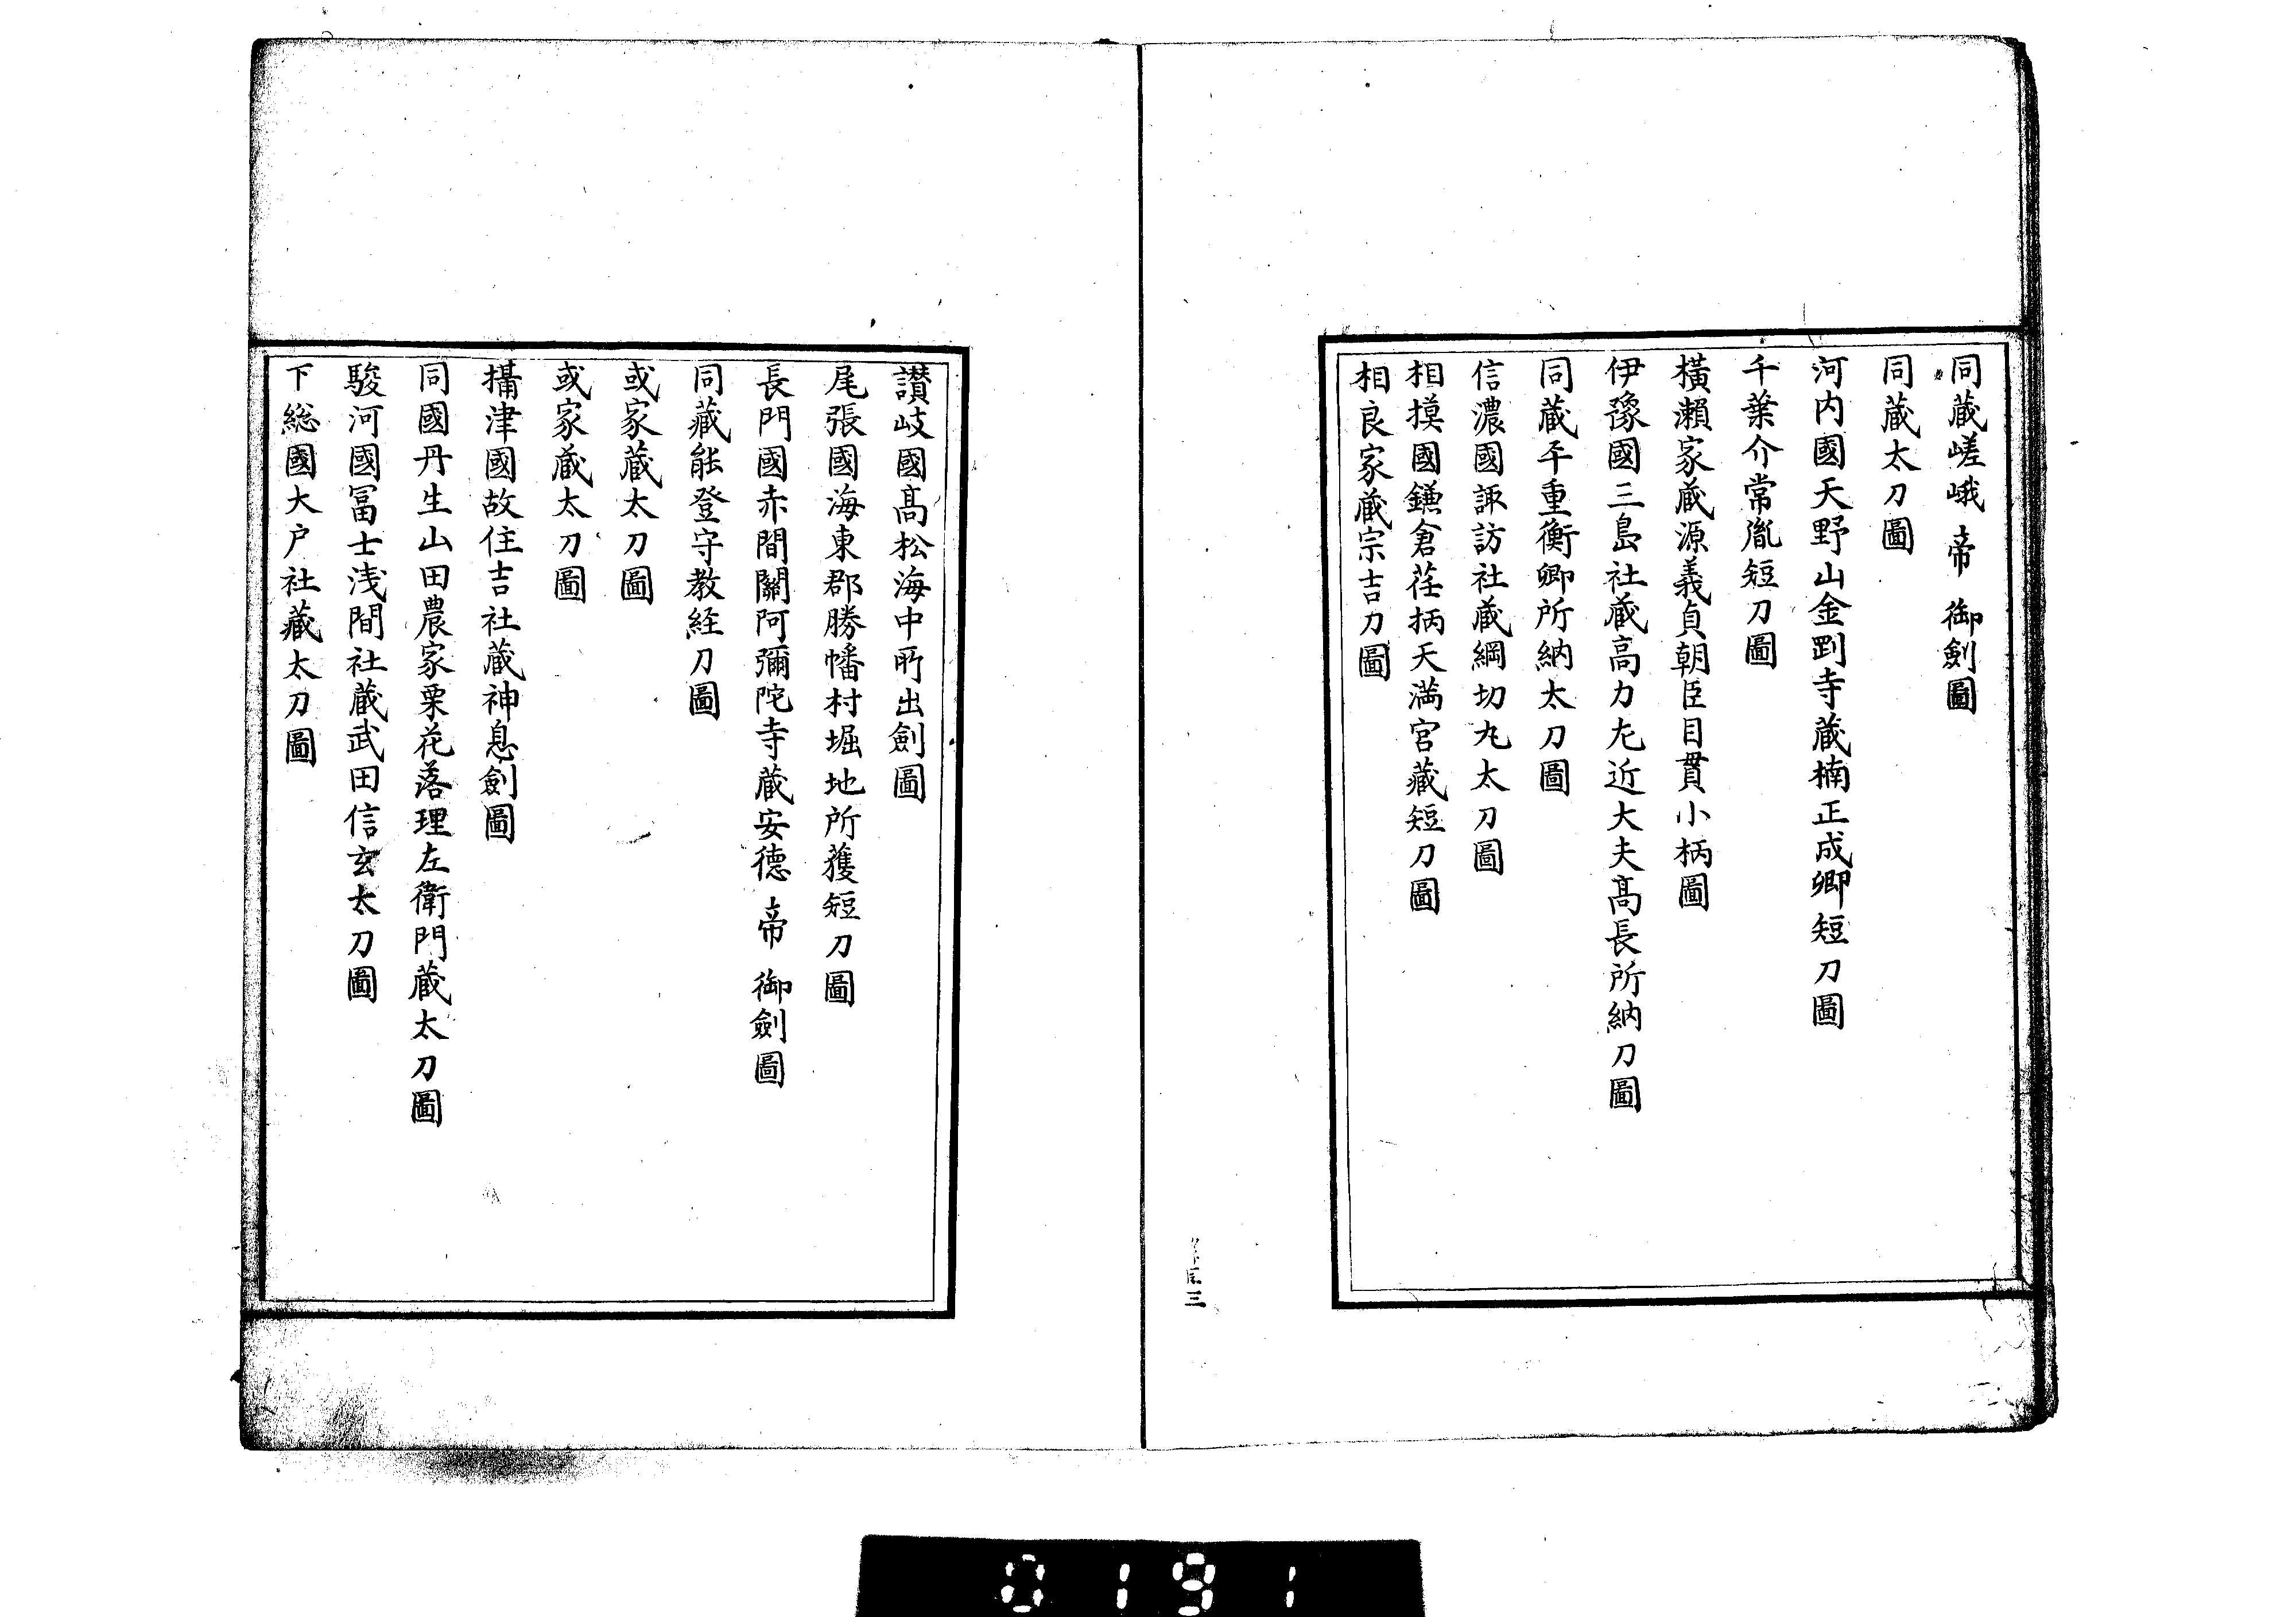 同蔵嵯峨帝御劍圖
同蔵太刀圖
河内國天野山金剛寺蔵楠正成卿短刀圖
千葉介常胤短刀圖
横瀬家蔵源義貞朝臣目貫小柄圖
伊豫國三島社蔵高力左近大夫髙長所納刀圖
同蔵平重衡卿所納太刀圖
信濃國諏訪社蔵綱切丸太刀圖
相摸國鎌倉荏柄天満宮蔵短刀圖
相良家蔵宗吉刀圖
讃岐國髙松海中所出劍圖
尾張國海東郡勝幡村堀地所獲短刀圖
長門國赤間關阿彌陀寺蔵安徳帝御劍圖
同藏能登守教経刀圖
或家蔵太刀圖
或家蔵太刀圖
攝津國故住吉社蔵神息劍圖
同國丹生山田農家栗花落理左衛門蔵太刀圖
駿河國冨士浅間社蔵武田信玄太刀圖
下総國大戸社蔵太刀圖
0191